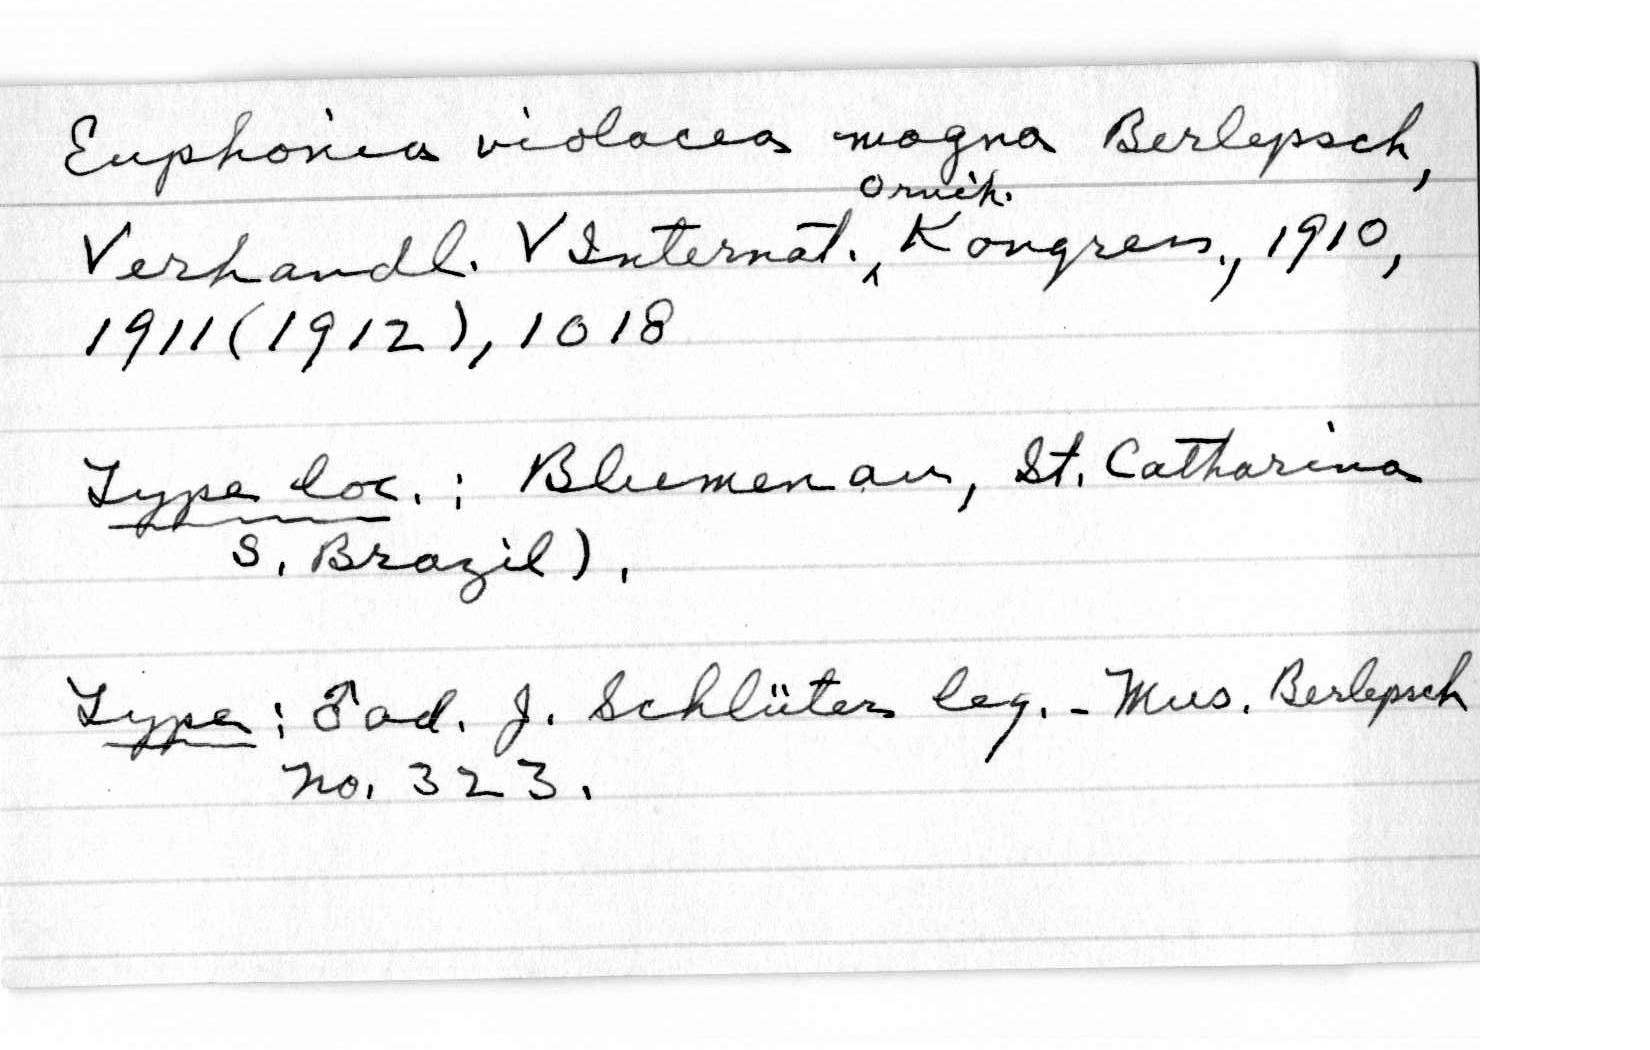 Euphonia violacea magna Berlepsch,
Verhandl. V Internat. Ornith. Kongress., 1910,
1911(1912), 1018
Type loc.: Blumenau, St. Catharina
S. Brazil).
Type: ♂ ad. J. Schlüter leg. - Mus. Berlepsch
no. 323.